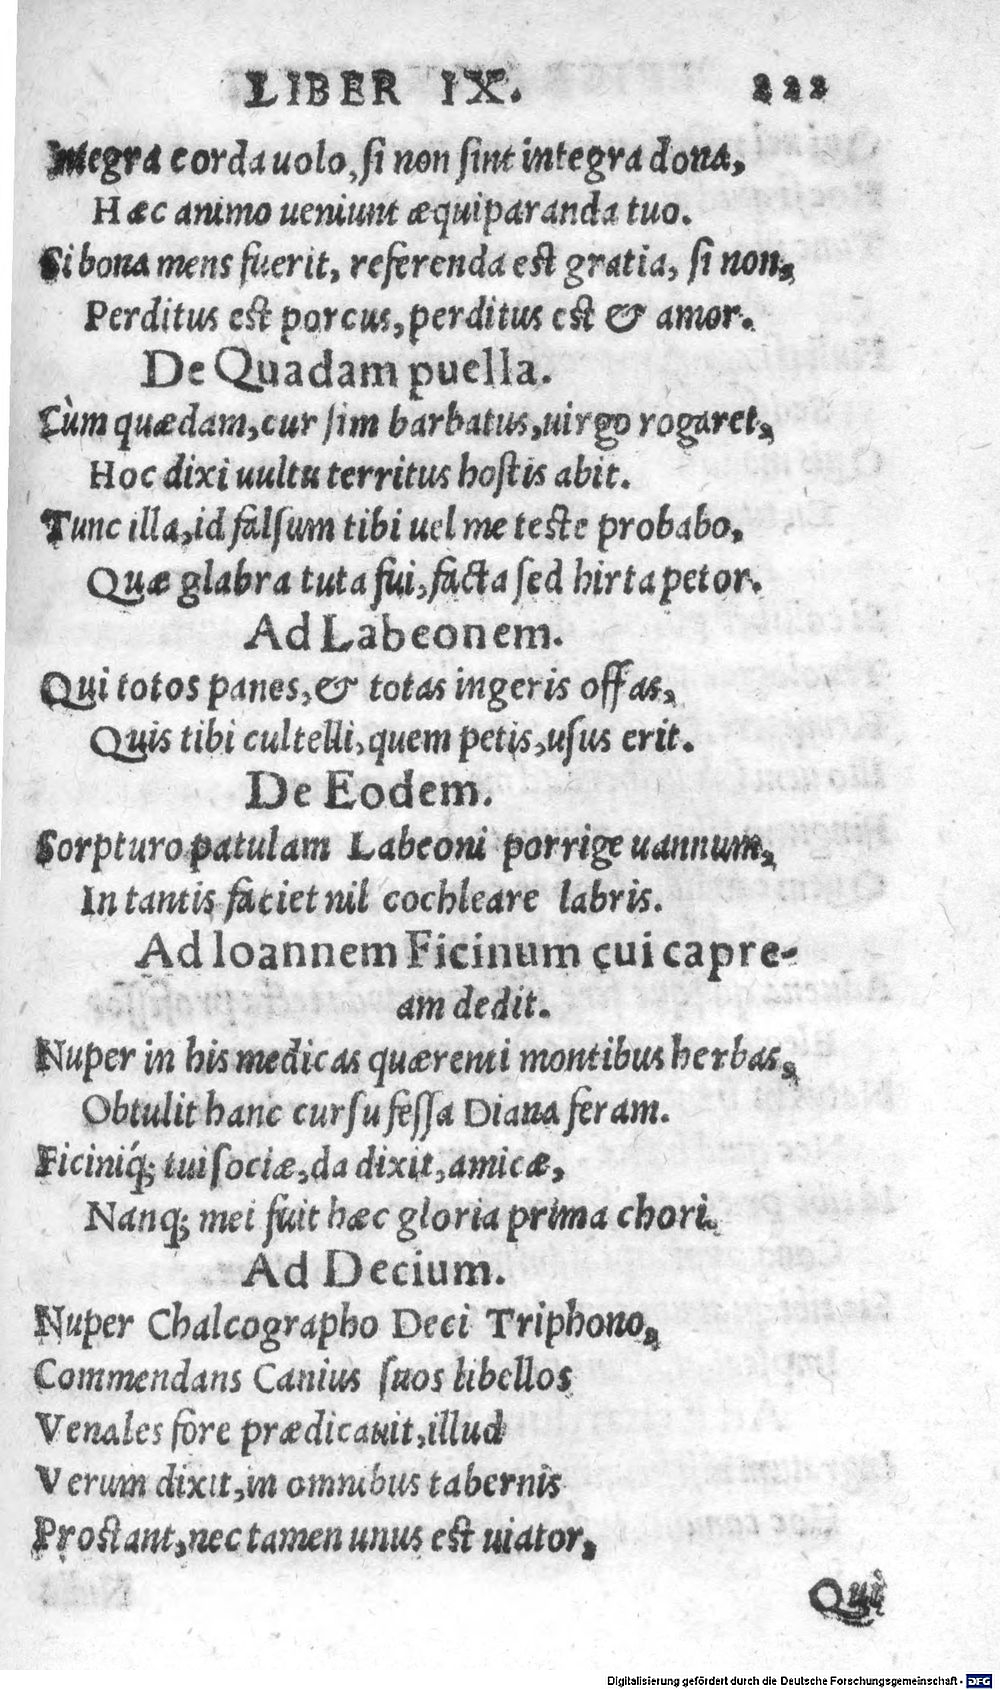 LIBER IX. 222
Integra corda uolo, si non sint integra dona,
Hæc animo ueniunt æquiparanda tuo.
Si bona mens fuerit, referenda est gratia, si non,
Perditus est porcus, perditus est & amor.
De Quadam puella.
Cùm quædam, cur sim barbatus, uirgo rogaret,
Hoc dixi uultu territus hostis abit.
Tunc illa, id falsum tibi uel me teste probabo,
Quæ glabra tuta fui, facta sed hirta petor.
Ad Labeonem.
Qui totos panes, & totas ingeris offas,
Quis tibi cultelli, quem petis, usus erit.
De Eodem.
Sorpturo patulam Labeoni porrige uannum,
In tantis faciet nil cochleare labris.
Ad Ioannem Ficinum cui capre-
am dedit.
Nuper in his medicas quærenti montibus herbas,
Obtulit hanc cursu fessa Diana feram.
Ficiniq́; tui sociæ, da dixit, amicæ,
Nanq; mei fuit hæc gloria prima chori.
Ad Decium.
Nuper Chalcographo Deci Triphono,
Commendans Canius suos libellos
Venales fore prædicauit, illud
Verum dixit, in omnibus tabernis
Prostant, nec tamen unus est uiator,
Qui
Digitalisierung gefördert durch die Deutsche Forschungsgemeinschaft - DFG